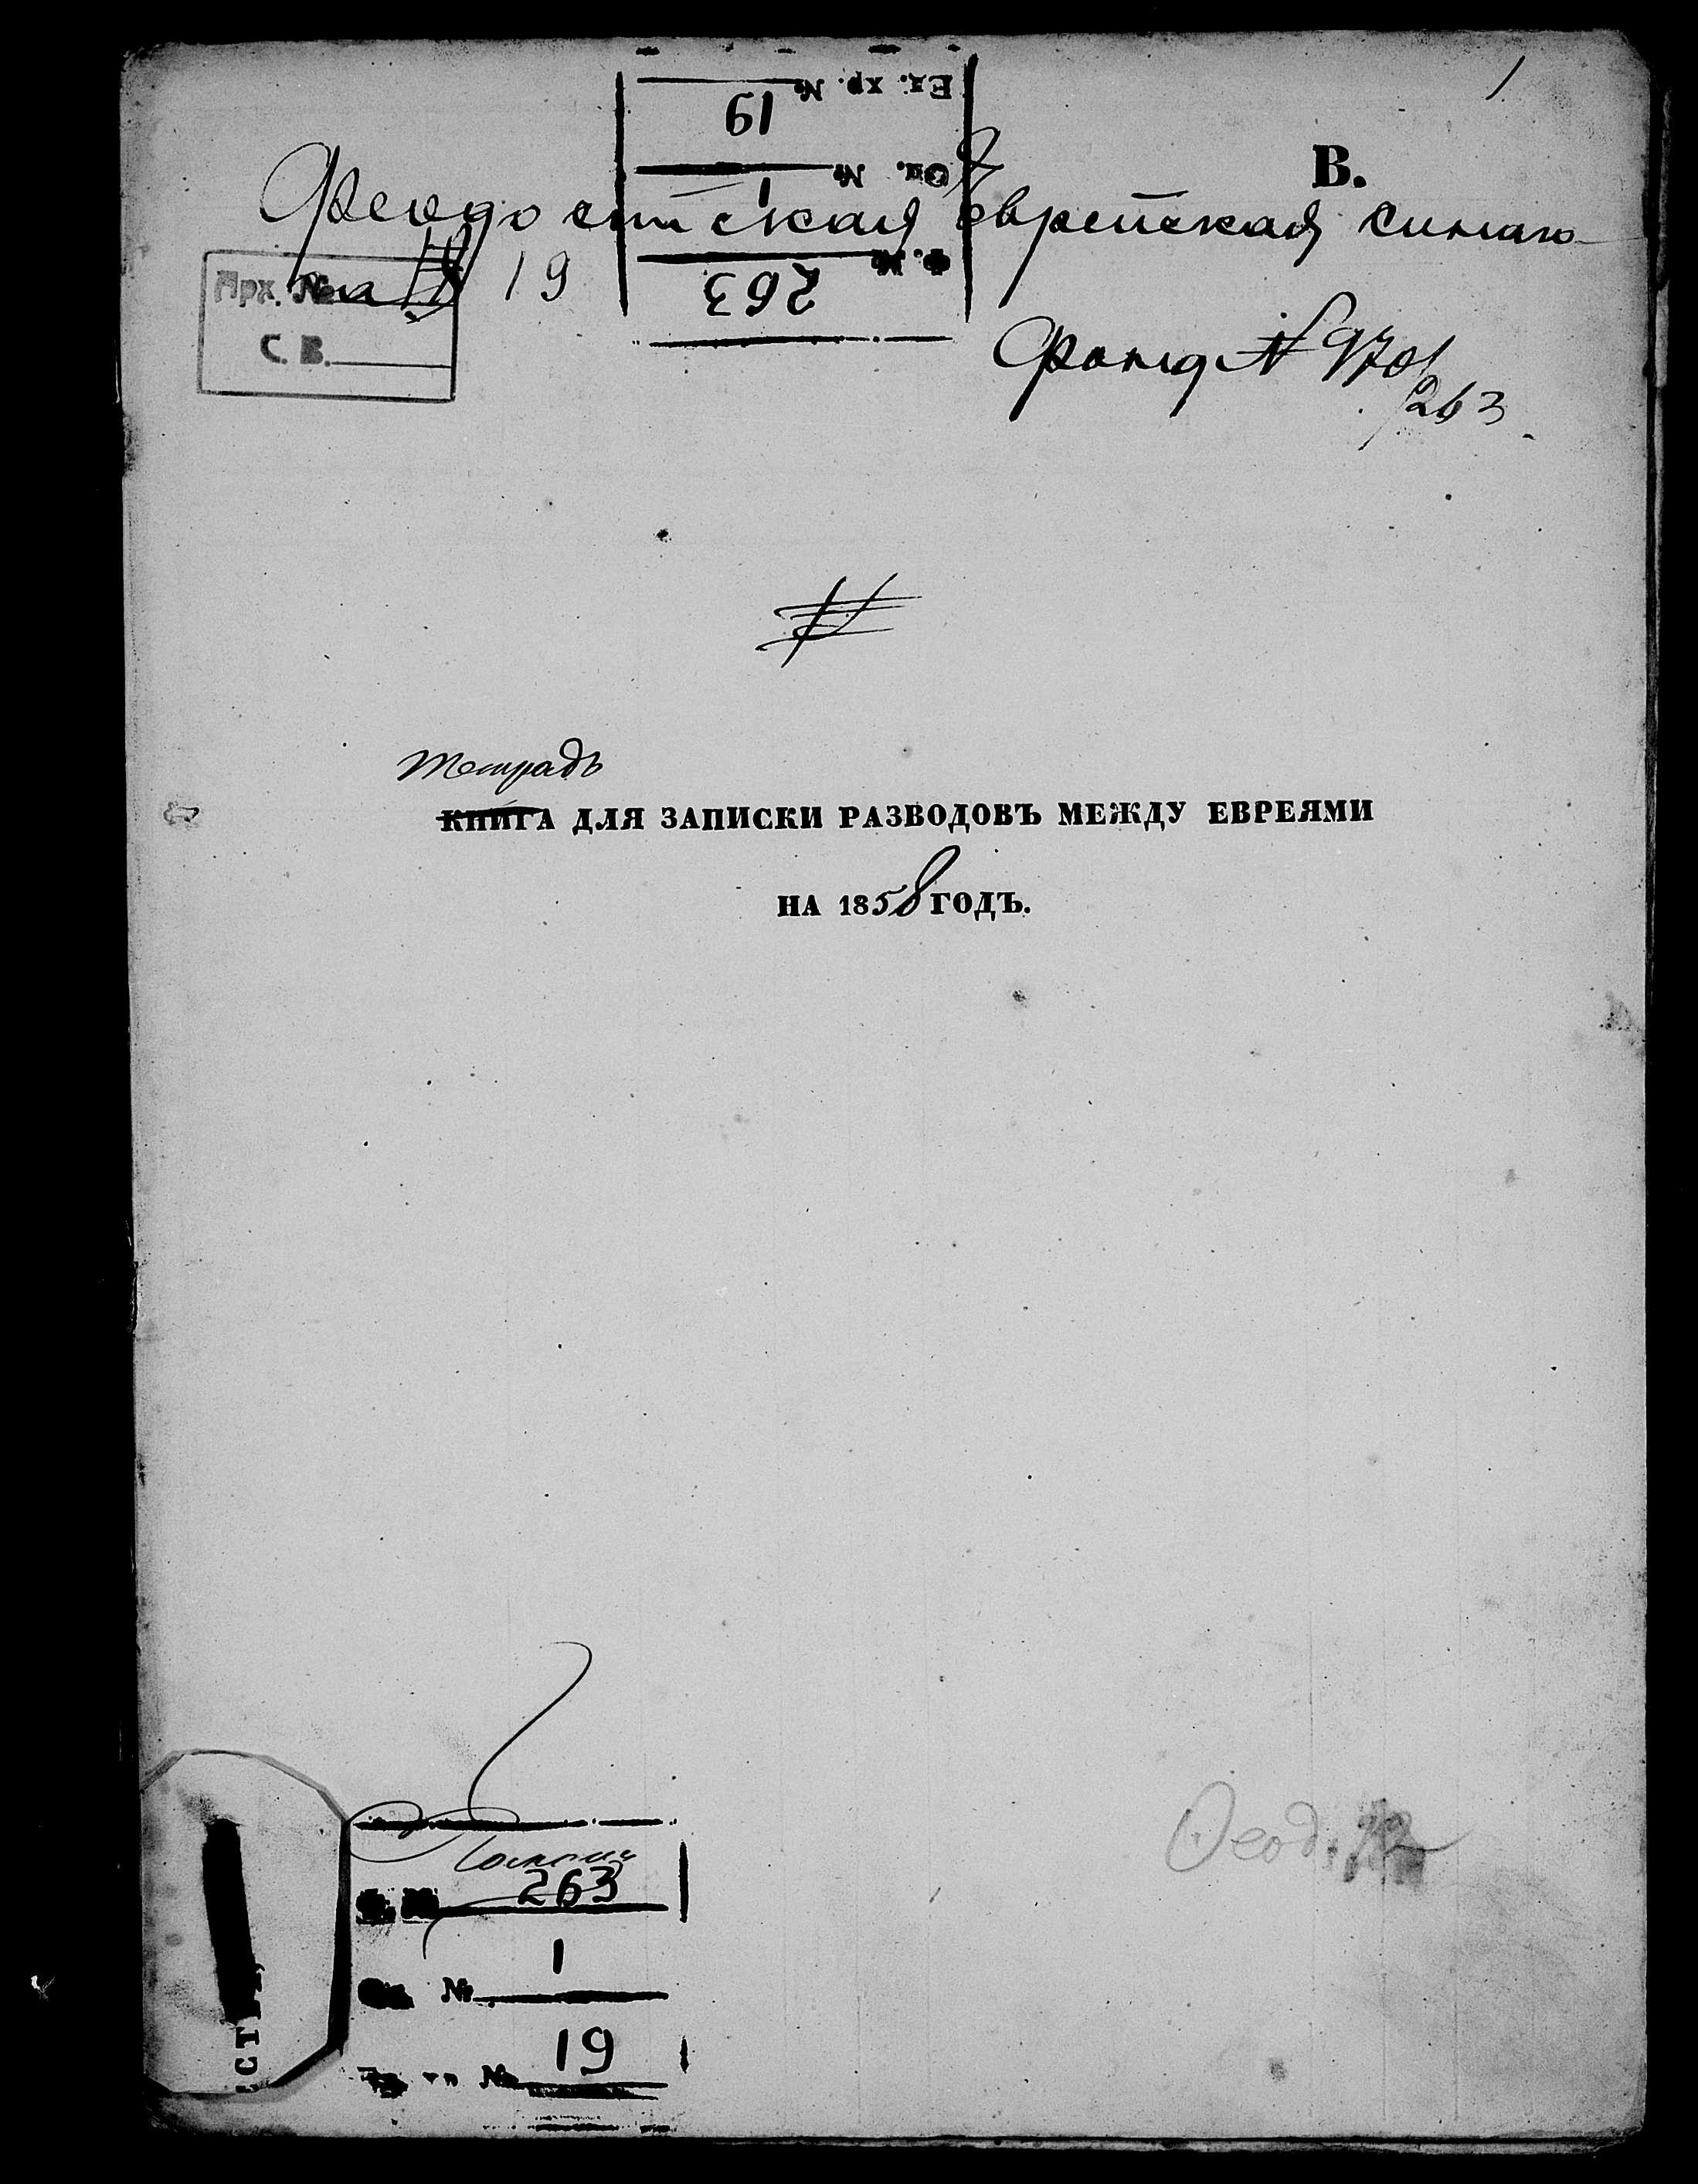 1
Ед. хр. № 19
Оп. № 1
Ф. № 263
В.
Феодосийская еврейская синаго-
га 19
Арх. №
С. В.
Фонд № 970
263
тетрадь
КНИГА ДЛЯ ЗАПИСКИ РАЗВОДОВЪ МЕЖДУ ЕВРЕЯМИ
НА 1858 ГОДЪ.
Феод.
263
№ 1
№ 19